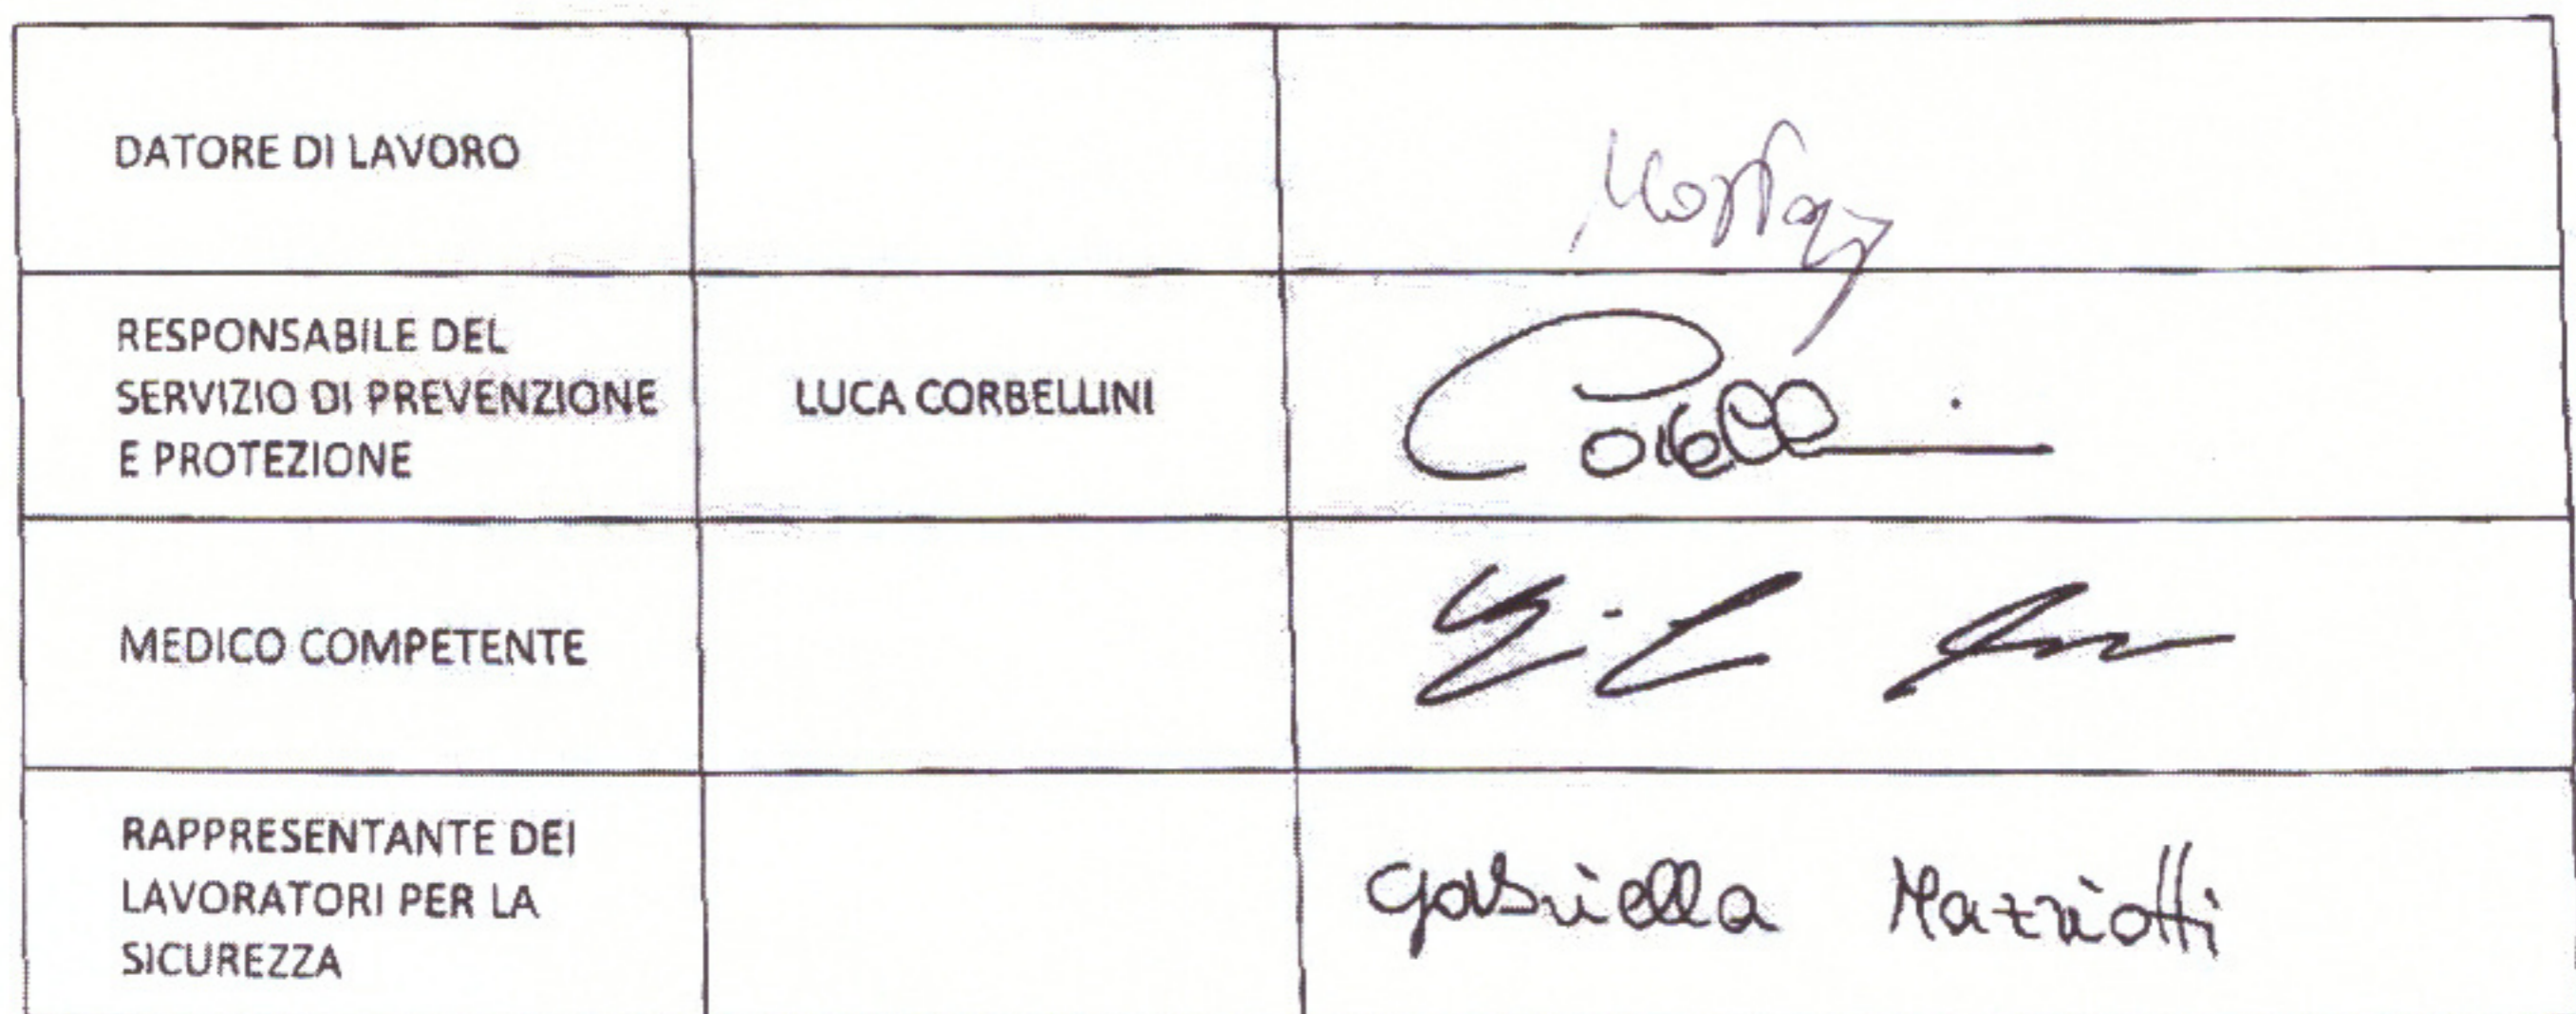 DATORE DI LAVORO
RESPONSABILE DEL
SERVIZIO DI PREVENZIONE
E PROTEZIONE
LUCA CORBELLINI
MEDICO COMPETENTE
RAPPRESENTANTE DEI
LAVORATORI PER LA
SICUREZZA
Gabriella Mazziotti